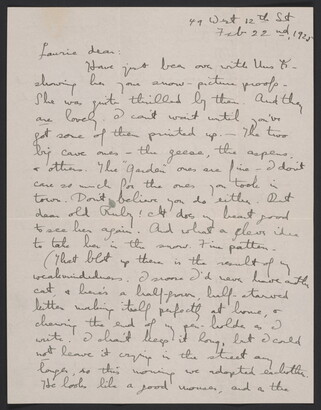 49 West 12th St
Feb 22nd, 1925
Laurie dear:
Have just been over with Miss B-
showing her your snow-picture proofs.
She was quite thrilled by them. And they
are lovely. I can't wait until you've
got some of them printed up. - The two
big cave ones - the geese, the aspens,
& others. The "Garden" ones are fine - I don't
care so much for the ones you took in
town. Don't believe you do either. But
dear old Ruby! It does my heart good
to see her again. And what a clever idea
to take her in the snow. Fine pattern.
(That blot up there is the result of my
weakmindedness. I swore I'd never have another
cat & here's a half-grown, half-starved
kitten making itself perfectly at home, &
chewing the end of my pen-holder as I
write. I shan't keep it long, but I could
not leave it crying in the street any
longer, so this morning we adopted eachother.
He looks like a good mouser, and as the